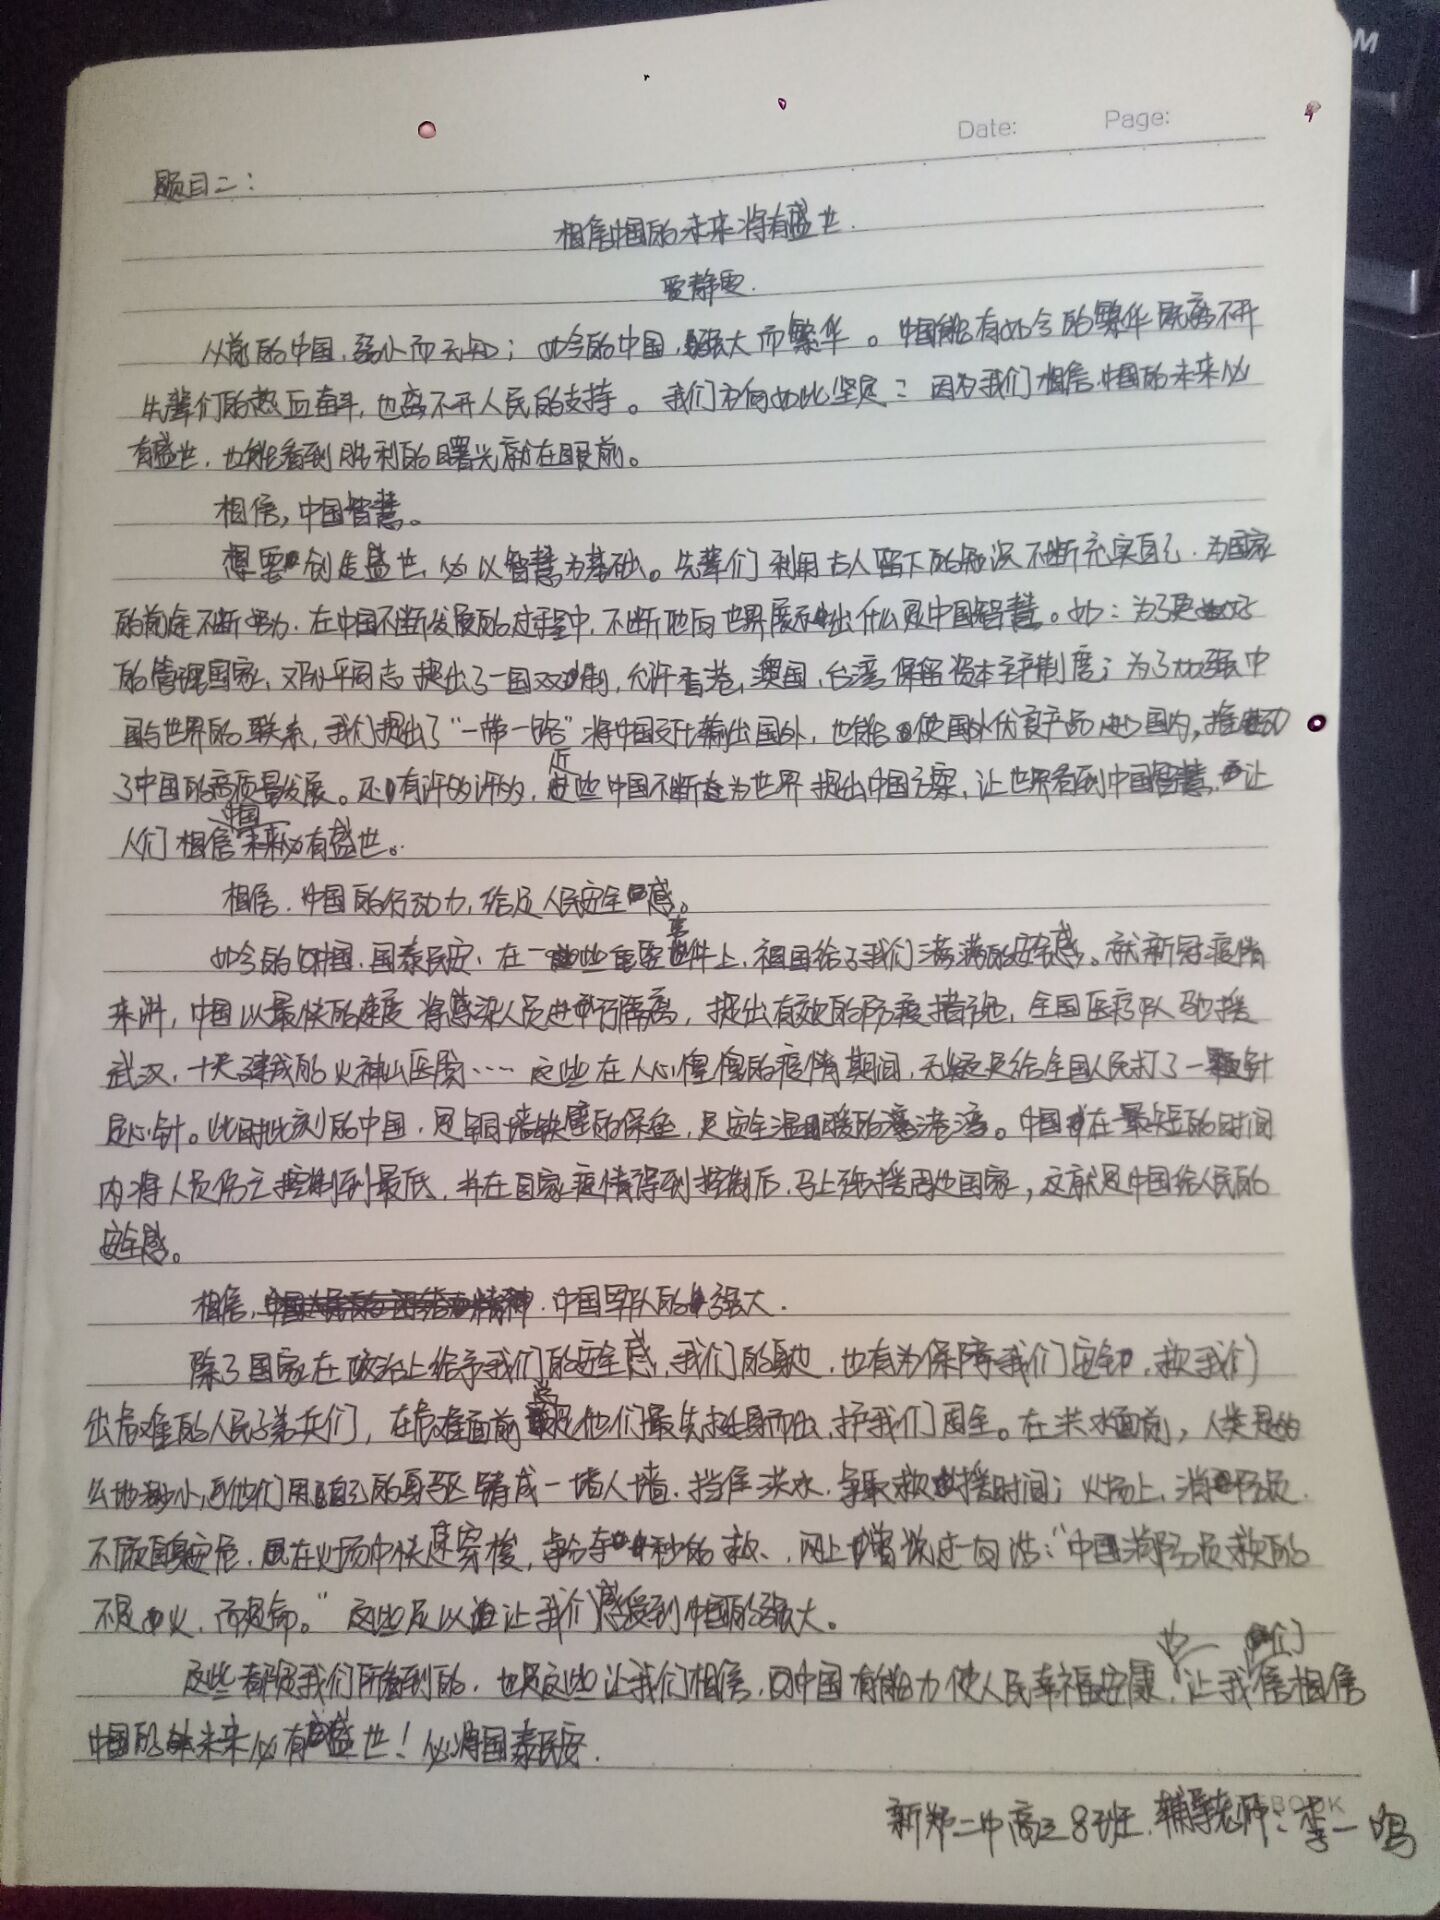 Date: Page:
题目二：
相信中国的未来将有盛世.
贾静雯.
从前的中国，弱小而无知；如今的中国，强大而繁华。中国能有如今的繁华既离不开
先辈们的热血奋斗，也离不开人民的支持。我们为何如此坚定：因为我们相信，中国的未来必
有盛世，也能看到胜利的曙光就在眼前。
相信，中国智慧。
想要创造盛世，必以智慧为基础。先辈们利用古人留下的知识不断充实自己，为国家
的前途不断努力，在中国不断发展的过程中，不断地向世界展示出什么是中国智慧。如：为了更好
的管理国家，邓小平同志提出了一国两制，允许香港，澳国，台湾保留资本主义制度；为了加强中
国与世界的联系，我们提出了“一带一路”将中国文化输出国外，也能使国外优良产品进国内，推动
了中国的高质量发展。还有许多许多，近些中国不断在为世界提出中国方案，让世界看到中国智慧，让
人们相信中国未来必有盛世。
相信，中国的行动力，给足人民安全感。
如今的中国，国泰民安，在一些重要事件上，祖国给了我们满满的安全感。就新冠疫情
来讲，中国以最快的速度将感染人员进行隔离，提出有效的防疫措施，全国医疗队驰援
武汉，十天建成的火神山医院……这些在人心惶惶的疫情期间，无疑是给全国人民打了一颗针
定心针。此时此刻的中国，是铜墙铁壁的保垒，是安全温暖的港湾。中国在最短的时间
内将人员伤亡控制到最低，并在国家疫情得到控制后，马上驰援周边国家，这就是中国给人民的
安全感。
相信，中国军队的强大.
除了国家在政治上给予我们的安全感，我们的身边，也有为保障我们安全，救我们
出危难的人民子弟兵们，在危难面前总是他们最先挺身而出，护我们周全。在洪水面前，人类是多
么地渺小，而他们用自己的身躯铸成一堵人墙，挡住洪水，争取救援时间；火场上，消防员
不顾自身安危，在火场中快速穿梭，争分夺秒的救、，网上曾说过一句话：“中国消防员救的
不是火，而是命。”这些足以让我们感受到中国的强大。
这些都是我们所看到的，也是这些让我们相信，中国有能力使人民幸福安康，也让我们相信
中国的未来必有盛世！必将国泰民安.
新郑二中高三8班，辅导老师：李一鸣